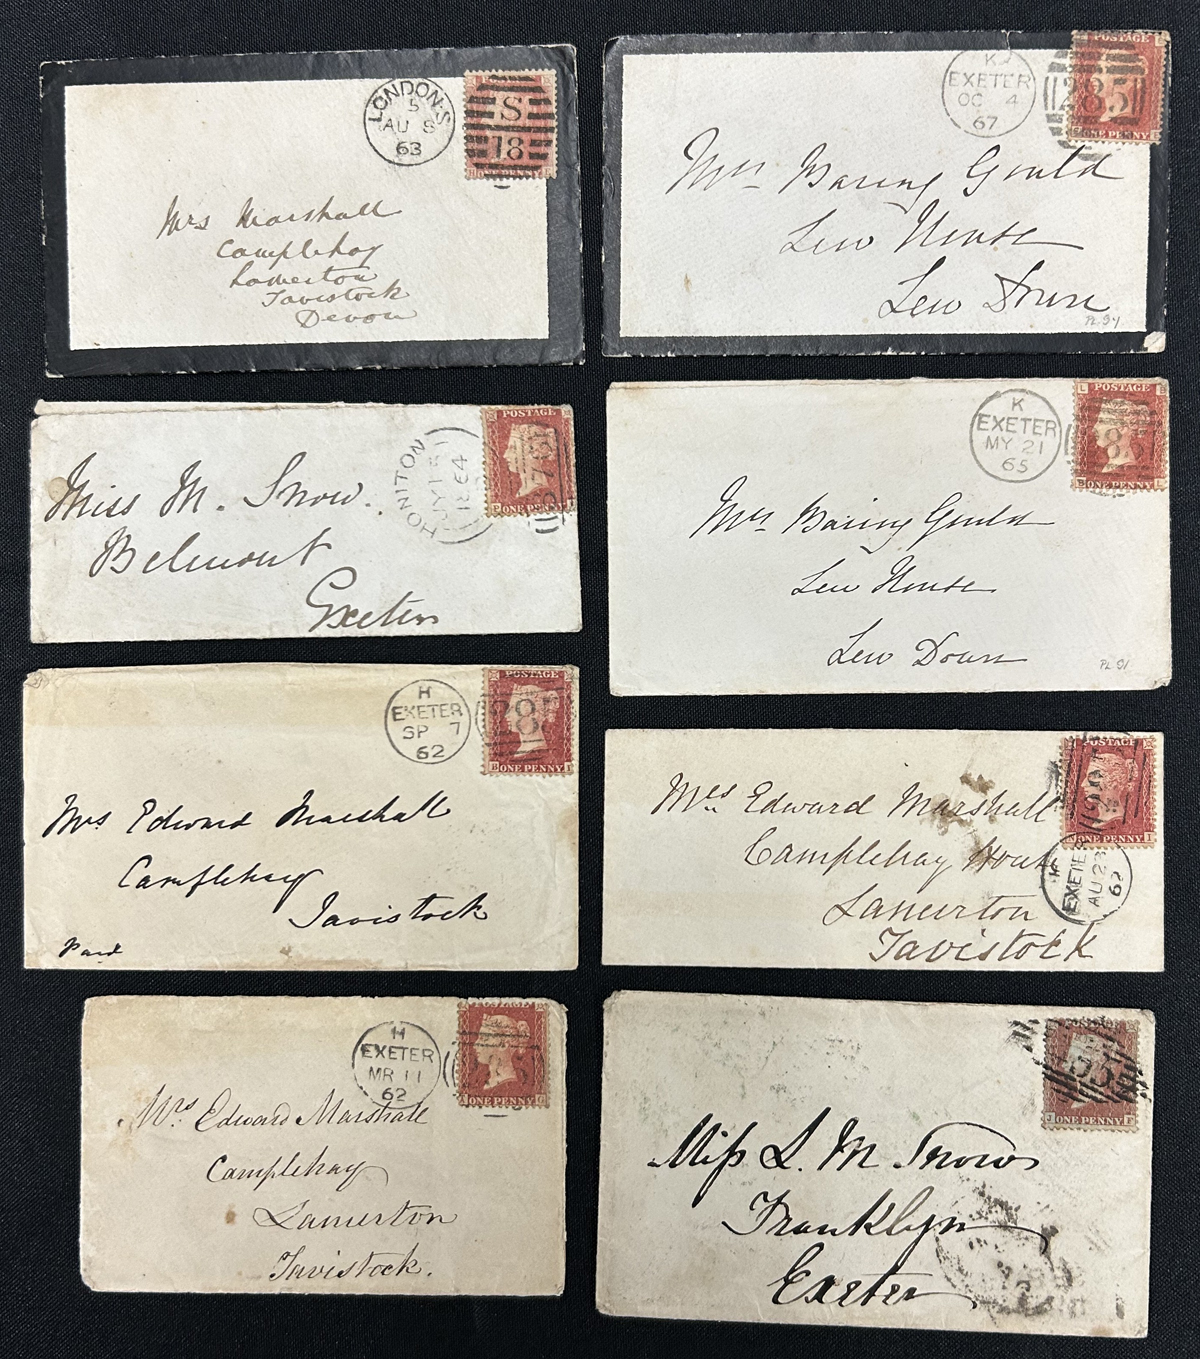 LONDON.S
5
AU 8
63
S
18
ONE PENNY
Mrs Marshall
Camplehay
Lamerton
Tavistock
Devon
K
EXETER
OC 4
67
POSTAGE
285
ONE PENNY
Mrs Baring Gould
Lew House
Lew Down
PL 94
HONITON
JY 15
1864
POSTAGE
ONE PENNY
Miss M. Snow.
Belmont
Exeter
K
EXETER
MY 21
65
L POSTAGE B
85
B ONE PENNY L
Mrs Baring Gould
Lew House
Lew Down
PL 91
H
EXETER
SP 7
62
POSTAGE
285
B ONE PENNY I
Mrs Edward Marshall
Camplehay
Tavistock
Paid
POSTAGE
ONE PENNY I
EXETER
AU 23
62
Mrs Edward Marshall
Camplehay House
Lamerton
Tavistock
H
EXETER
MR 11
62
POSTAGE
ONE PENNY
Mrs. Edward Marshall
Camplehay
Lamerton
Tavistock.
J ONE PENNY F
Miss L. M Snow
Franklyn
Exeter